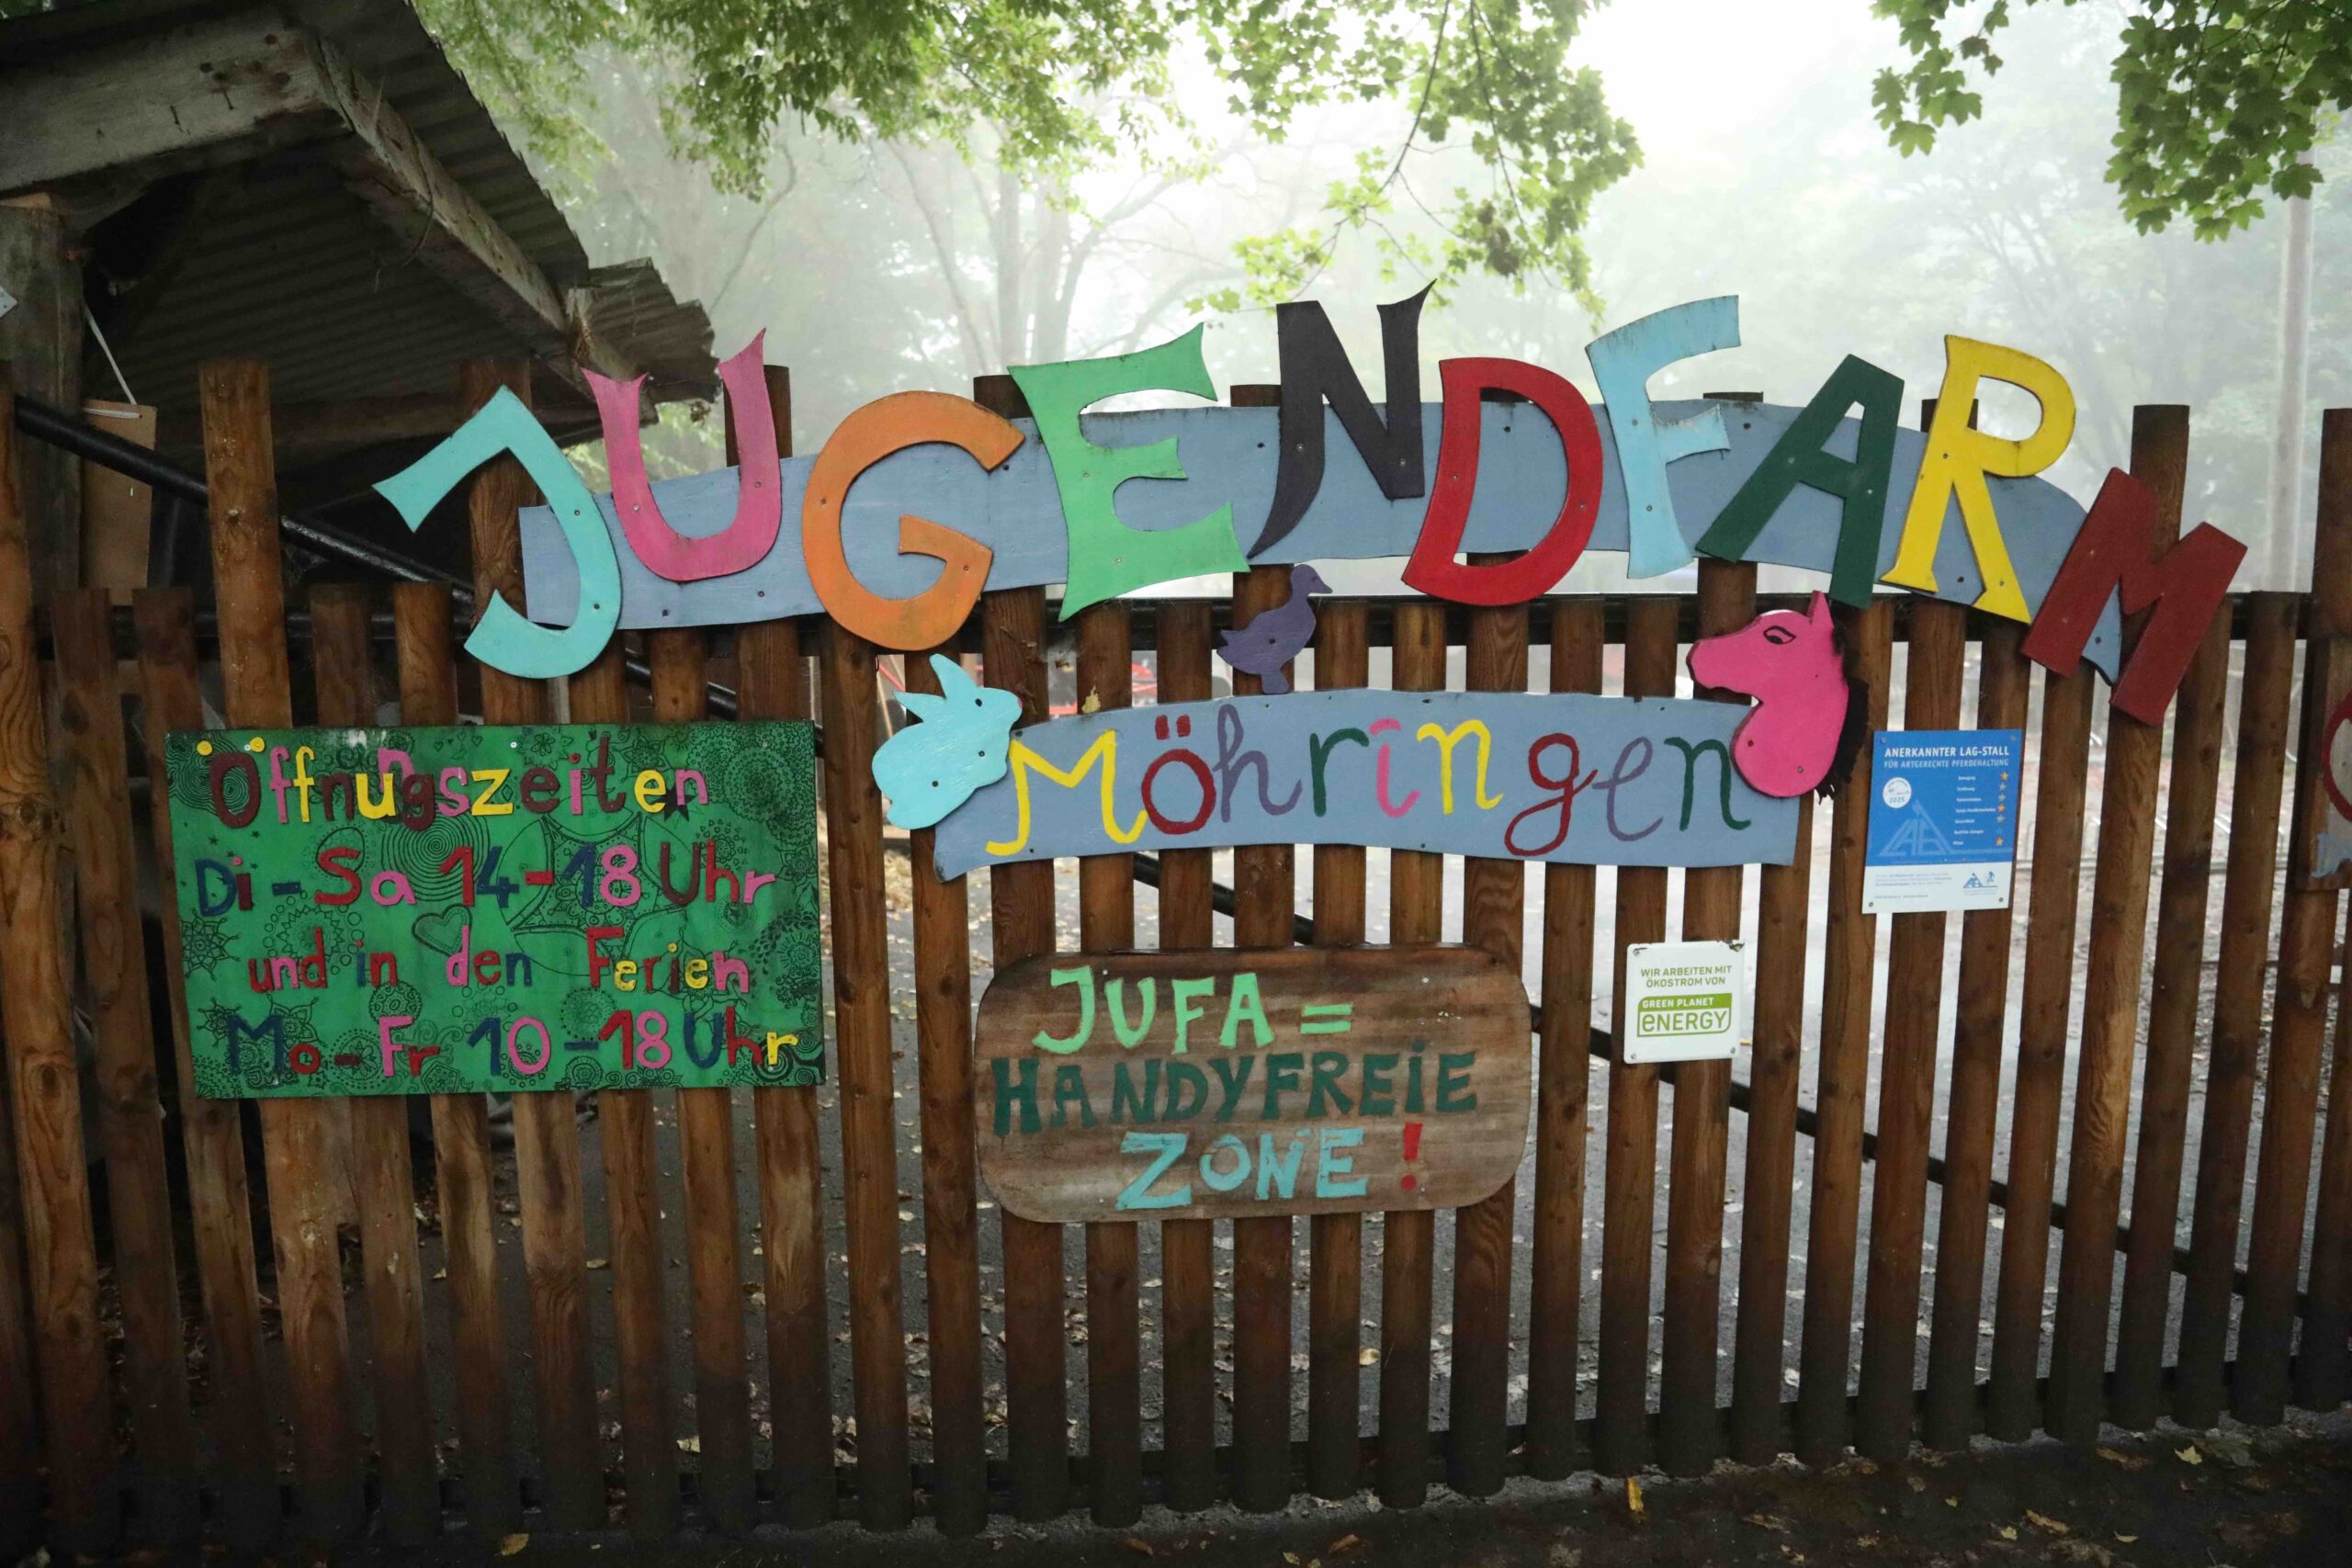 JUGENDFARM
Möhringen
Öffnungszeiten
Di - Sa 14-18 Uhr
und in den Ferien
Mo - Fr 10-18 Uhr
JUFA =
HANDYFREIE
ZONE!
WIR ARBEITEN MIT
ÖKOSTROM VON
GREEN PLANET
ENERGY
ANERKANNTER LAG-STALL
FÜR ARTGERECHTE PFERDEHALTUNG
2025